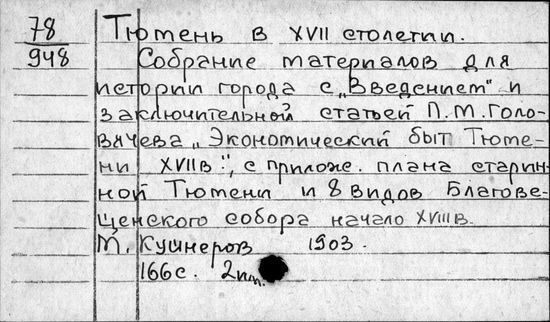 78
948
Тюмень в XVII столетии.
Собрание материалов для
истории города с „Введением" и
заключительной статьей П.М. Голо-
вачева „Экономический быт Тюме-
ни XVIIв.", с приложе. плана старин-
ной Тюмени и 8 видов Благове-
щенского собора начало XVIIIв.
М. Кушнеров 1903.
166с. 2пл.